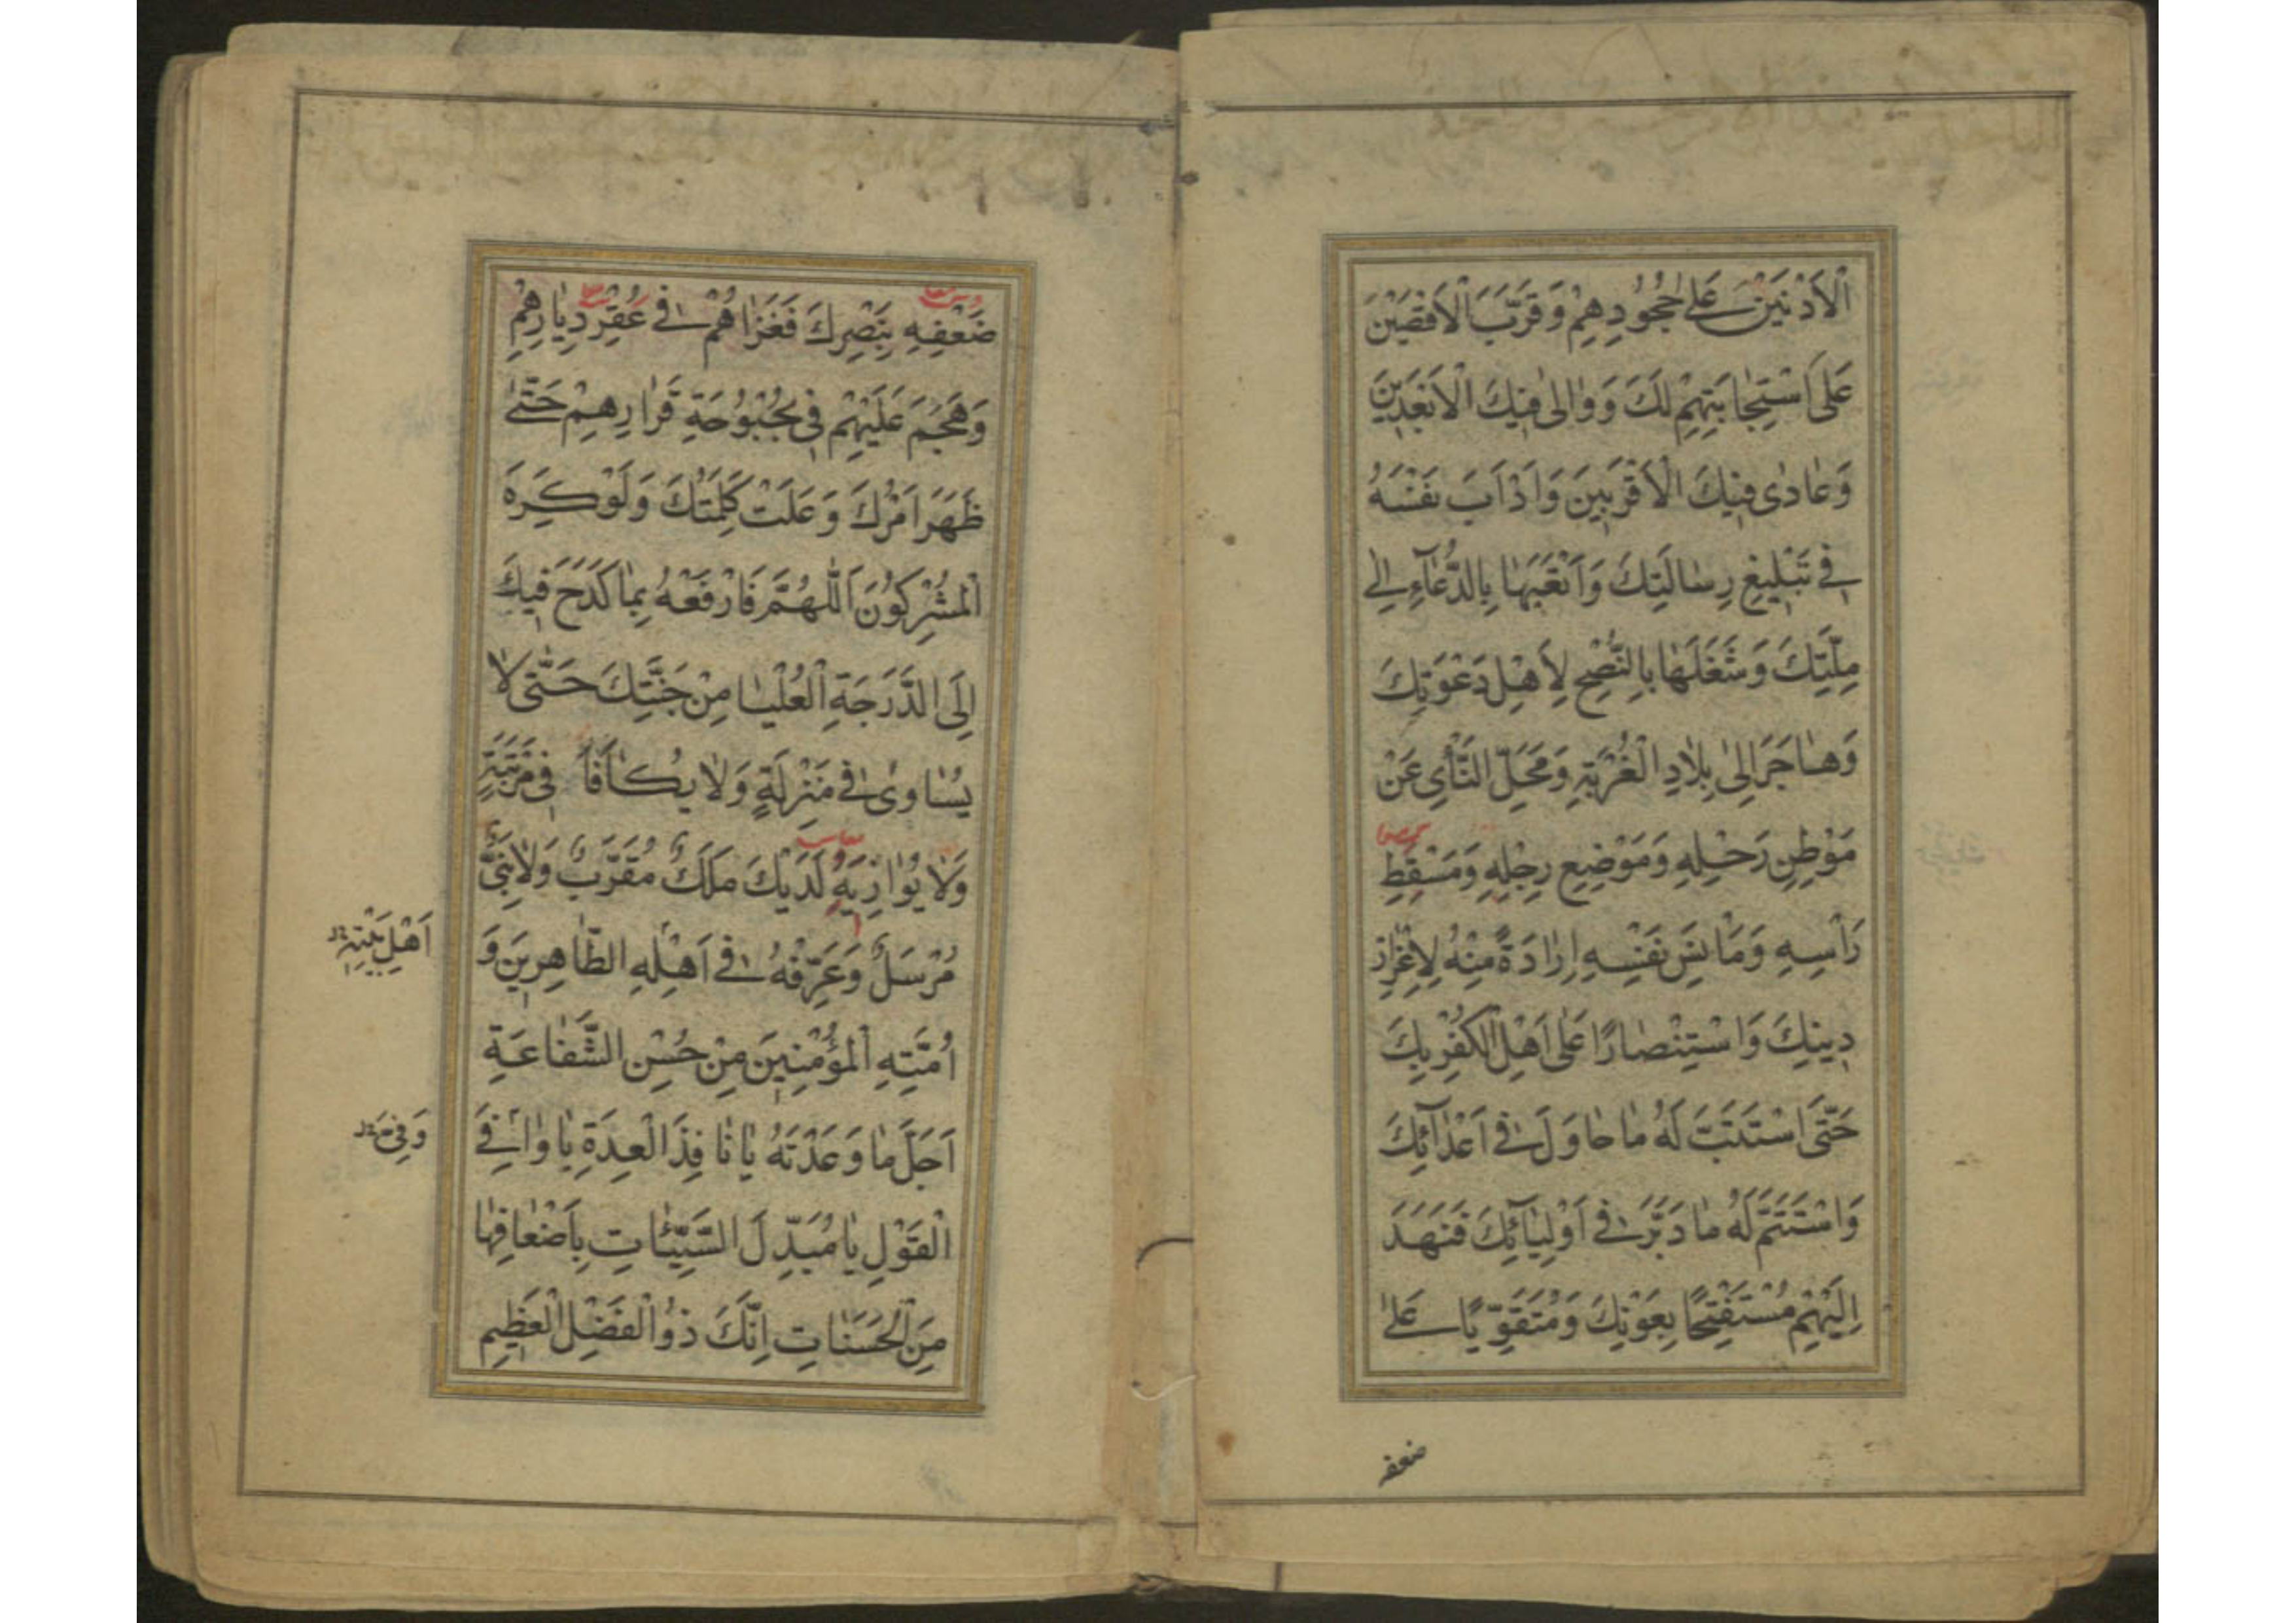 الْاَدْنَيْنَ عَلٰى جُحُودِهِمْ وَقَرَّبَ الْاَقْصَيْنَ
عَلَى اسْتِجٰابَتِهِمْ لَكَ وَوٰالٰى فِيكَ الْاَبْعَدِينَ
وَعٰادٰى فِيكَ الْاَقْرَبِينَ وَاَدْاَبَ نَفْسَهُ
فِي تَبْلِيغِ رِسٰالَتِكَ وَاَتْعَبَهٰا بِالدُّعٰآءِ اِلٰى
مِلَّتِكَ وَشَغَلَهٰا بِالنُّصْحِ لِاَهْلِ دَعْوَتِكَ
وَهٰاجَرَ اِلٰى بِلٰادِ الْغُرْبَةِ وَمَحَلِّ النَّأْيِ عَنْ
مَوْطِنِ رَحْلِهِ وَمَوْضِعِ رِجْلِهِ وَمَسْقِطِ
رَأْسِهِ وَمَأْنَسِ نَفْسِهِ اِرٰادَةً مِنْهُ لِاِعْزٰازِ
دِينِكَ وَاسْتِنْصٰارًا عَلٰى اَهْلِ الْكُفْرِ بِكَ
حَتَّى اسْتَتَبَّ لَهُ مٰا حٰاوَلَ فِي اَعْدٰآئِكَ
وَاسْتَتَمَّ لَهُ مٰا دَبَّرَ فِي اَوْلِيٰآئِكَ فَنَهَدَ
اِلَيْهِمْ مُسْتَفْتِحًا بِعَوْنِكَ وَمُتَقَوِّيًا عَلٰى
ضعفه
ضَعْفِهِ بِنَصْرِكَ فَغَزٰاهُمْ فِي عُقْرِ دِيٰارِهِمْ
وَهَجَمَ عَلَيْهِمْ فِي بُحْبُوحَةِ قَرٰارِهِمْ حَتّٰى
ظَهَرَ اَمْرُكَ وَعَلَتْ كَلِمَتُكَ وَلَوْ كَرِهَ
الْمُشْرِكُونَ اَللّٰهُمَّ فَارْفَعْهُ بِمٰا كَدَحَ فِيكَ
اِلَى الدَّرَجَةِ الْعُلْيٰا مِنْ جَنَّتِكَ حَتّٰى لٰا
يُسٰاوٰى فِي مَنْزِلَةٍ وَلٰا يُكٰافَأَ فِي مَرْتَبَةٍ
وَلٰا يُوٰازِيَهُ لَدَيْكَ مَلَكٌ مُقَرَّبٌ وَلٰا نَبِيٌّ
مُرْسَلٌ وَعَرِّفْهُ فِي اَهْلِهِ الطّٰاهِرِينَ وَ
اَهْلِ بَيْتِهِ
اُمَّتِهِ الْمُؤْمِنِينَ مِنْ حُسْنِ الشَّفٰاعَةِ
اَجَلَّ مٰا وَعَدْتَهُ يٰا نٰافِذَ الْعِدَةِ يٰا وٰافِيَ
وَفِيَّ
الْقَوْلِ يٰا مُبَدِّلَ السَّيِّئٰاتِ بِاَضْعٰافِهٰا
مِنَ الْحَسَنٰاتِ اِنَّكَ ذُو الْفَضْلِ الْعَظِيمِ